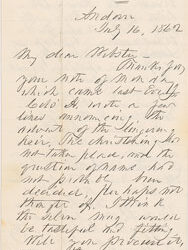 Andover
July 16, 1862
My dear Webster,
Thanks for
your note of Monday
which came last Eve'g
wrote a few
lines announcing the
advent of the
heir, The christening has
not taken place, and the
question of name had
not been
decided, perhaps not
thought of. I think
the silver mug would
be tasteful and fitting
Will you